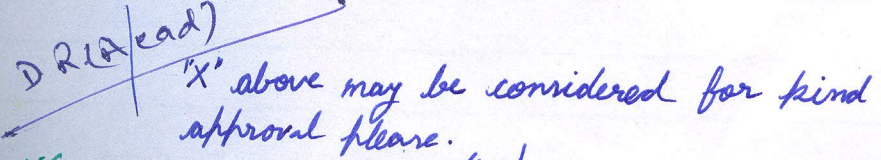 DR(Acad)
"X" above may be considered for kind
approval please.